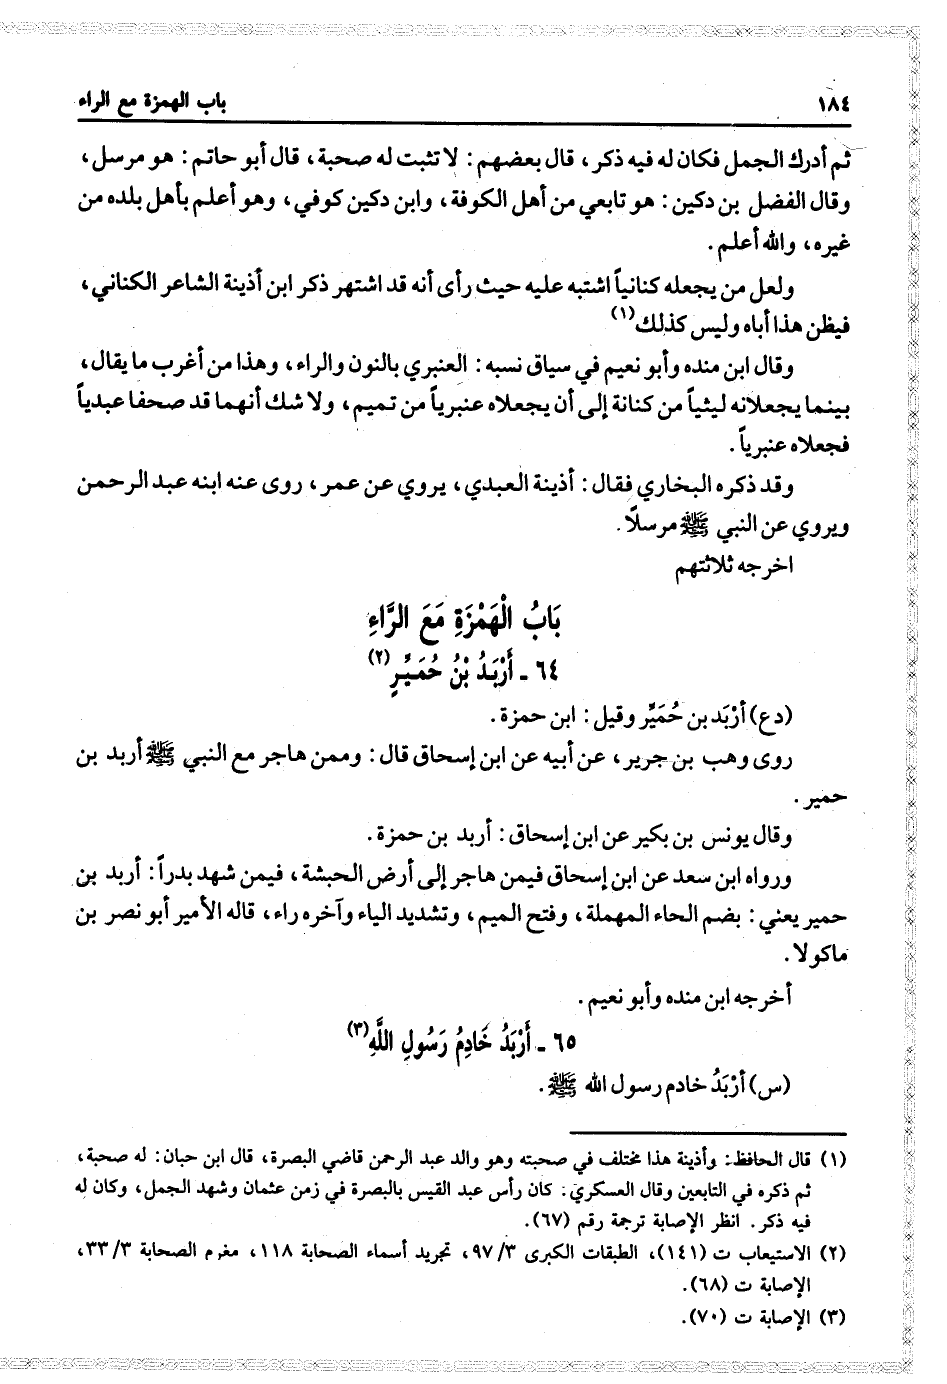 ١٨٤ باب الهمزة مع الراء
ثم أدرك الجمل فكان له فيه ذكر، قال بعضهم: لا تثبت له صحبة، قال أبو حاتم: هو مرسل،
وقال الفضل بن دكين: هو تابعي من أهل الكوفة، وابن دكين كوفي، وهو أعلم بأهل بلده من
غيره، والله أعلم.
ولعل من يجعله كنانياً اشتبه عليه حيث رأى أنه قد اشتهر ذكر ابن أذينة الشاعر الكناني،
فيظن هذا أباه وليس كذلك(١)
وقال ابن منده وأبو نعيم في سياق نسبه: العنبري بالنون والراء، وهذا من أغرب ما يقال،
بينما يجعلانه ليثياً من كنانة إلى أن يجعلاه عنبرياً من تميم، ولا شك أنهما قد صحفا عبدياً
فجعلاه عنبرياً.
وقد ذكره البخاري فقال: أذينة العبدي، يروي عن عمر، روى عنه ابنه عبد الرحمن
ويروي عن النبي ﷺ مرسلاً.
اخرجه ثلاثتهم
بَابُ الْهَمْزَةِ مَعَ الرَّاءِ
٦٤ ـ أَرْبَدُ بْنُ حُمَيِّرٍ(٢)
(دع) أرْبَد بن حُمَيِّر وقيل: ابن حمزة.
روى وهب بن جرير، عن أبيه عن ابن إسحاق قال: وممن هاجر مع النبي ﷺ أربد بن
حمير.
وقال يونس بن بكير عن ابن إسحاق: أربد بن حمزة.
ورواه ابن سعد عن ابن إسحاق فيمن هاجر إلى أرض الحبشة، فيمن شهد بدراً: أربد بن
حمير يعني: بضم الحاء المهملة، وفتح الميم، وتشديد الياء وآخره راء، قاله الأمير أبو نصر بن
ماكولا.
أخرجه ابن منده وأبو نعيم.
٦٥ ـ أَرْبَدُ خَادِمُ رَسُولِ اللَّهِ(٣)
(س) أرْبَدُ خادم رسول الله ﷺ.
(١) قال الحافظ: وأذينة هذا مختلف في صحبته وهو والد عبد الرحمن قاضي البصرة، قال ابن حبان: له صحبة،
ثم ذكره في التابعين وقال العسكري: كان رأس عبد القيس بالبصرة في زمن عثمان وشهد الجمل، وكان له
فيه ذكر. انظر الإصابة ترجمة رقم (٦٧).
(٢) الاستيعاب ت (١٤١)، الطبقات الكبرى ٩٧/٣، تجريد أسماء الصحابة ١١٨، مغرم الصحابة ٣٣/٣،
الإصابة ت (٦٨).
(٣) الإصابة ت (٧٠).